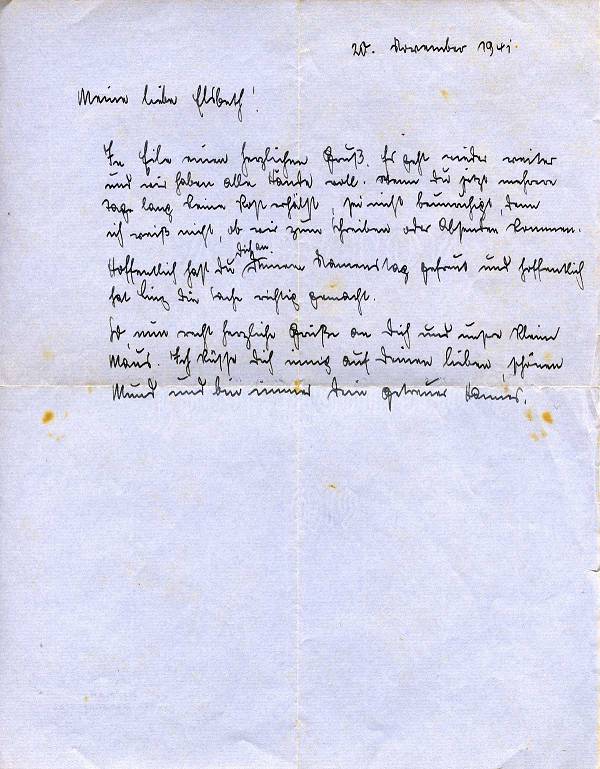 20. November 1941.
Meine liebe Elsbeth!
In Eile einen herzlichen Gruß. Es geht wieder weiter
und wir haben alle Hände voll. Wenn Du jetzt mehrere
Tage lang keine Post erhälst, sei nicht beunruhigt, denn
ich weiß nicht, ob wir zum Schreiben oder Absenden kommen.
Dich an
Hoffentlich hast Du Deinem Namenstag gefreut und hoffentlich
hat die Sache richtig gemacht.
So, nun recht herzliche Grüße an Dich und unser klein
Maus. Ich küsse Dich innig auf Deinen lieben, schönen
Mund und bin immer Dein getreuer Hannes.